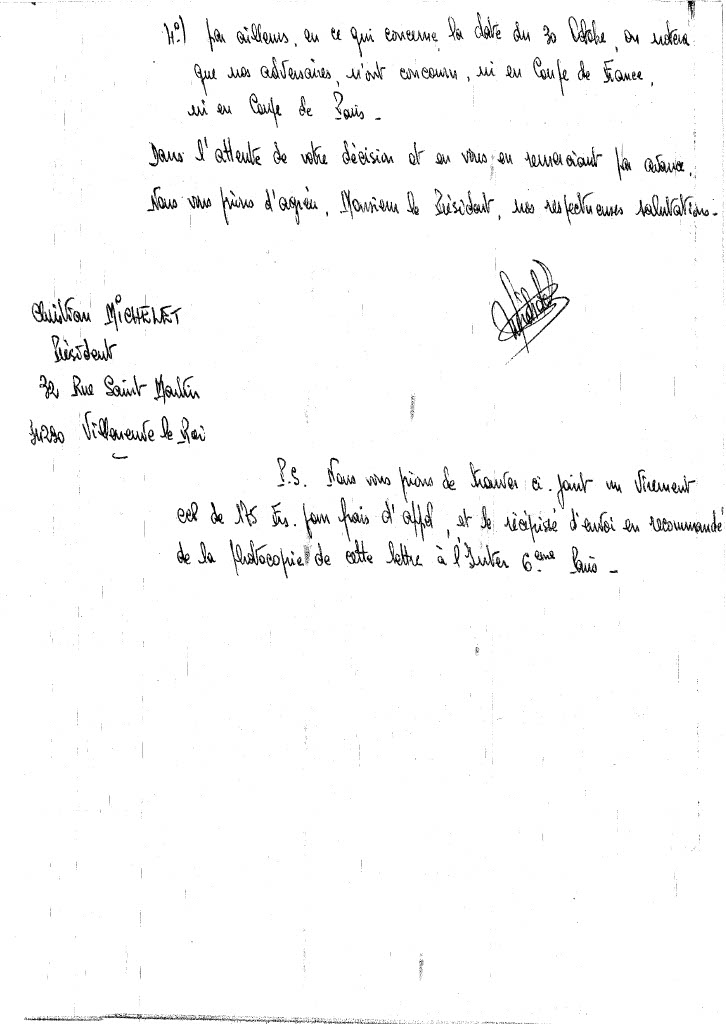 4°) par ailleurs, en ce qui concerne la date du 30 Octobre, on notera
que nos adversaires, n'ont concouru, ni en Coupe de France,
ni en Coupe de Paris -
Dans l'attente de votre décision et en vous en remerciant par avance,
Nous vous prions d'agréer, Monsieur le Président, nos respectueuses salutations -
Christian MICHELET
Président
32 Rue Saint Martin
94290 Villeneuve le Roi
P.S. Nous vous prions de trouver ci-joint un virement
de 175 Frs. pour frais d'appel, et le récépissé d'envoi en recommandé
de la photocopie de cette lettre à l'Inter 6ème Paris -